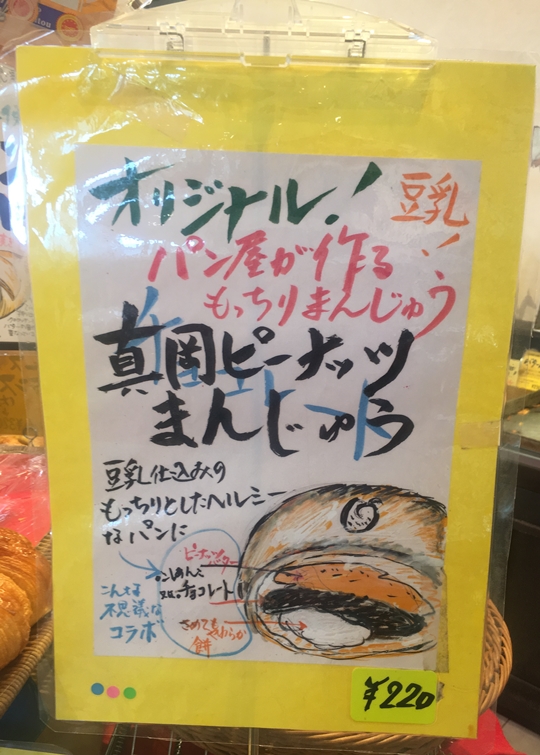 オリジナル!
豆乳
パン屋が作る
もっちりまんじゅう
真岡ピーナッツ
まんじゅう
豆乳仕込みの
もっちりとしたヘルシー
なパンに
ピーナッツバター
こしあんと
チョコレート
さめてもやわらか
餅
こんな
不思議な
コラボ
¥220